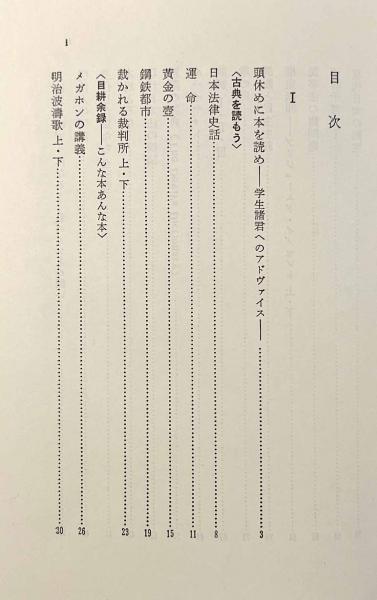 目次
I
頭休めに本を読め——学生諸君へのアドヴァイス——……3
〈古典を読もう〉
日本法律史話……8
運命……11
黄金の壺……15
鋼鉄都市……19
裁かれる裁判所 上・下……23
〈目耕余録——こんな本あんな本〉
メガホンの講義……26
明治波濤歌 上・下……30
i